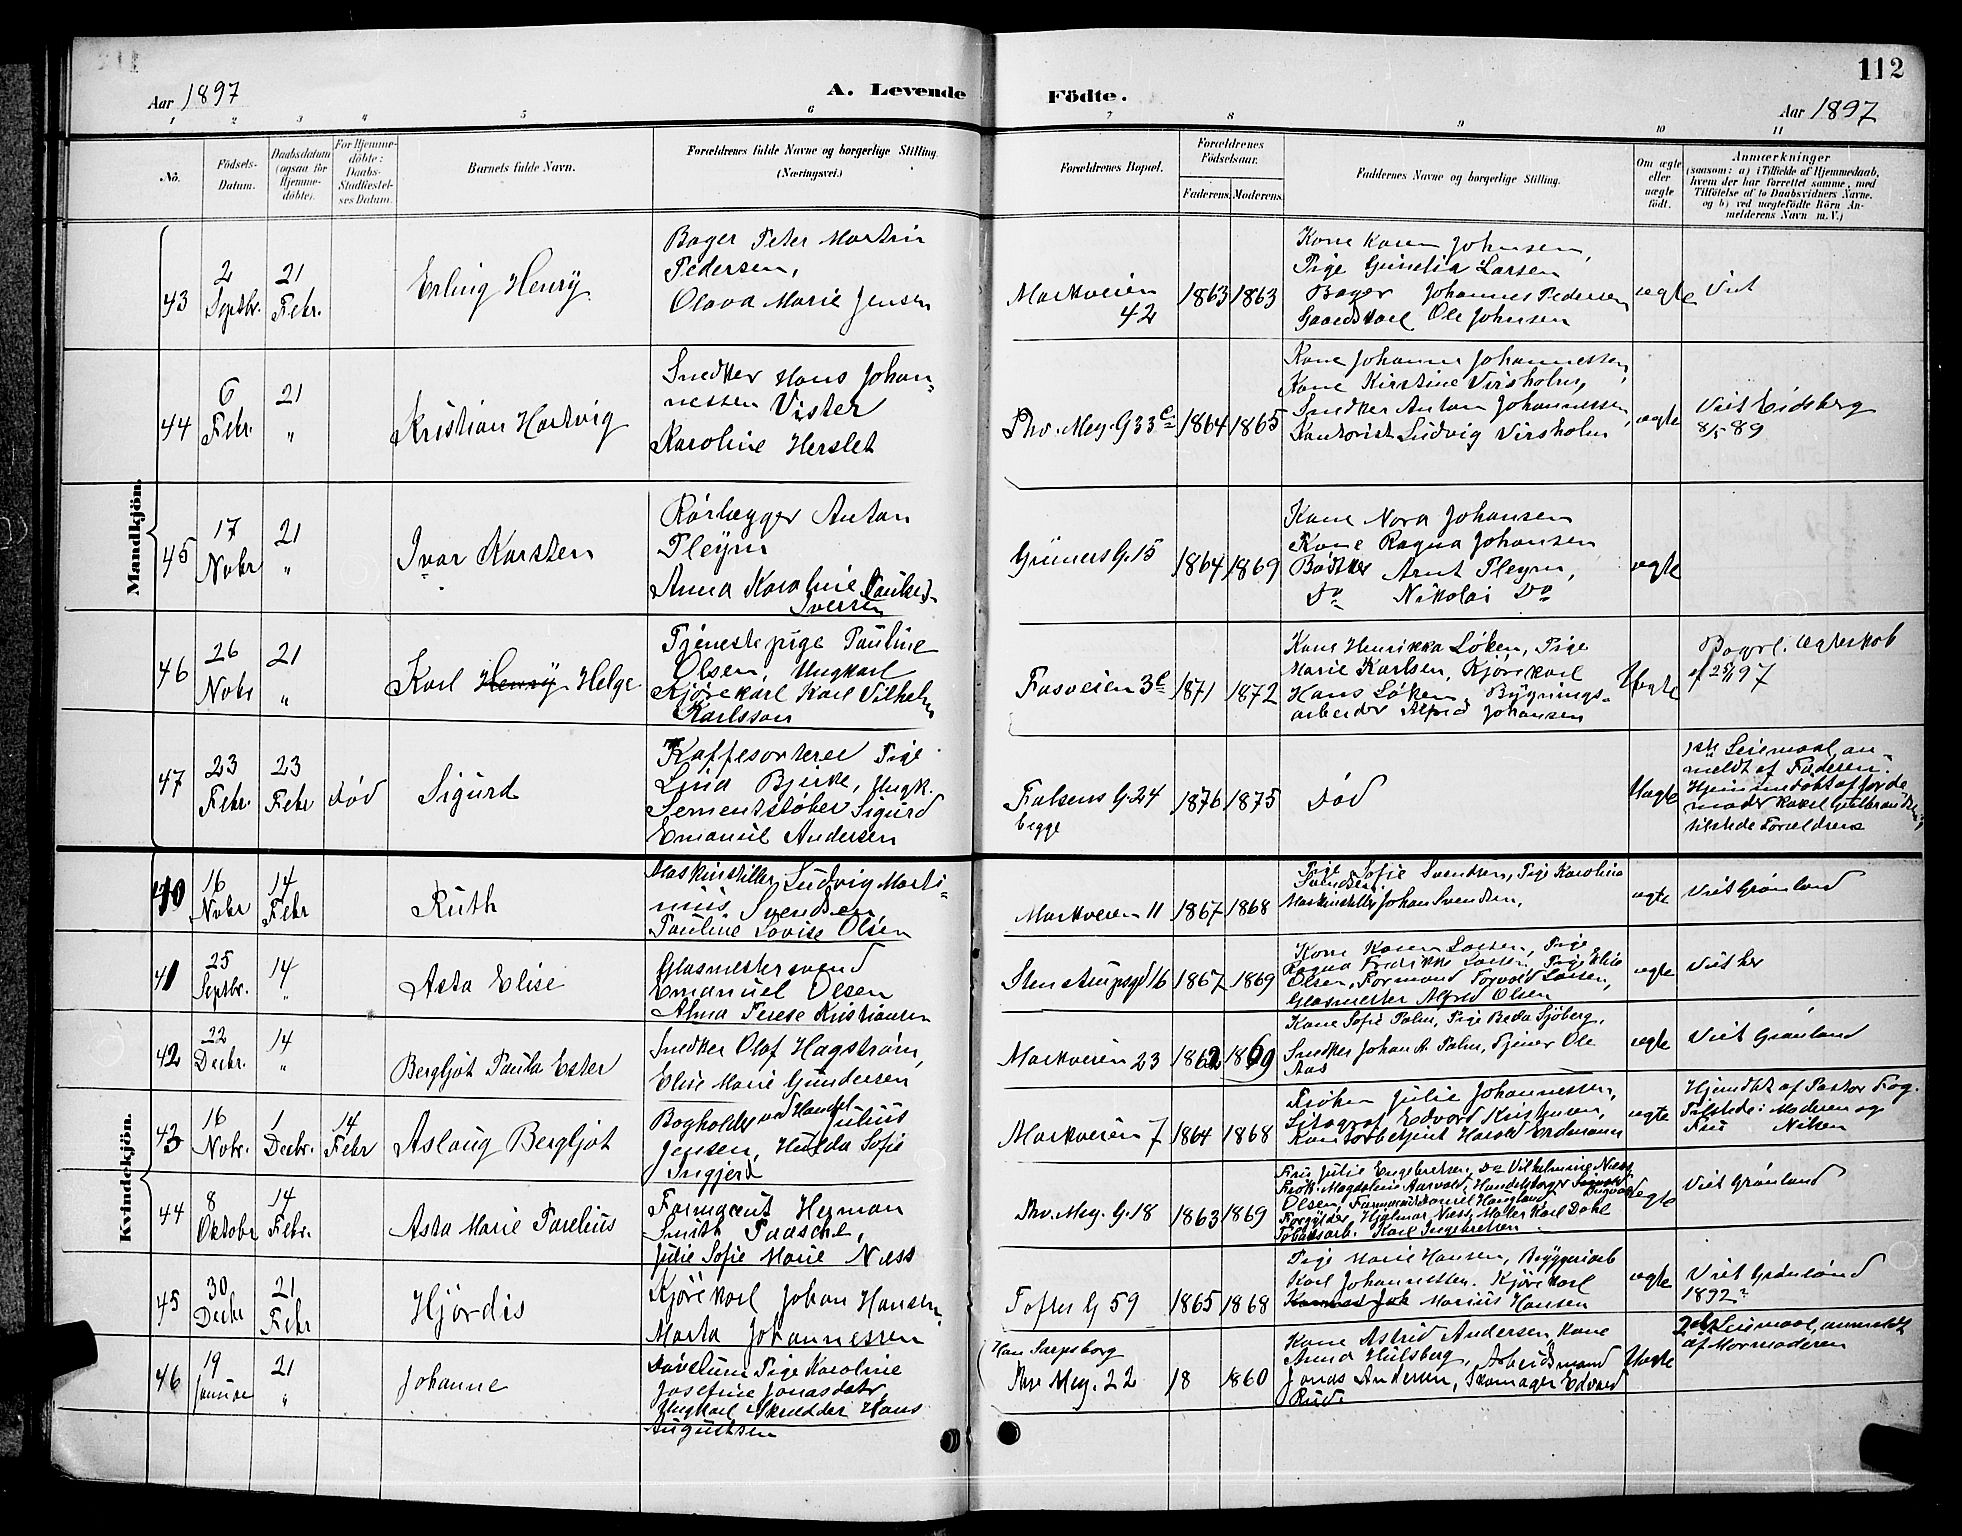 112
Aar 1897
A. Levende Födte.
Aar 1897
1 2 3 4 5 6 7 8 9 10 11
No.
Födsels-Datum.
Daabsdatum (ogsaa for Hjemme-döbte).
For Hjemme-döbte: Daabs-Stadfæstel-ses Datum.
Barnets fulde Navn.
Forældrenes fulde Navne og borgerlige Stilling.
(Næringsvei.)
Forældrenes Bopæl.
Forældrenes Födselsaar.
Faderens. Moderens.
Faddernes Navne og borgerlige Stilling.
Om ægte eller uægte födt.
Anmærkninger
(saasom: a) i Tilfælde af Hjemmedaab,
hvem der har forrettet samme, med
Tilföielse af to Daabsvidners Navne,
og b) ved uægtefödte Börn An-
melderens Navn m. V.)
Mandkjön.
43
2 Septbr.
21 Febr.
Erling Henry
Bager Peter Martin
Pedersen,
Olava Marie Jensen
Markveien
42
1863 1863
Kone Karen Johnsen,
Pige Gunelia Larsen
Bager Johannes Pedersen
Gaardskarl Ole Johnsen
ægte
Viet
44
6 Febr.
21 "
Kristian Hartvig
Snedker Hans Johan-
nessen Vister
Karoline Herslet
Thv. Mey. G 33 c
1864 1865
Kone Johanne Johannessen,
Kone Kirstine Virsholm,
Snedker Anton Johannessen,
Kontorist Ludvig Virsholm
ægte
Viet Eidsberg
8/5 89
45
17 Nobr
21 "
Ivar Karsten
Rørlægger Anton
Pleym
Anna Karoline
Iversen
Grüners G. 15
1864 1869
Kone Nora Johansen
Kone Ragna Johansen
Bødker Arnt Pleym,
Do Nikolai Do
ægte
46
26 Nobr
21 "
Karl Henry Helge
Tjenestepige Pauline
Olsen, Ungkarl
Kjørekarl Karl Vilhelm
Karlsson
Fosveien 3 c
1871 1872
Kone Henrikka Løken, Pige
Marie Karlsen, Kjørekarl
Hans Løken, Bygnings-
arbeider Alfred Johansen
Uægte
Borgl. Ægteskab
af 25/1 97
47
23 Febr.
23 Febr
død
Sigurd
Kaffesorterer Pige
Lina Bjerke, Ungk.
Sementstøber Sigurd
Emanuel Andersen
Falsens G. 24
begge
1876 1875
Død
Uægte
1ste Leiemaal, an-
meldt af Faderen.
Hjemmedøbt af Jorde
moder
tilstede Forældrene
Kvindekjön.
40
16 Nobr
14 Febr
Ruth
Maskinstiller Ludvig Marti-
nius Svendsen,
Pauline Lovise Olsen
Markveien 11
1867 1868
Pige Sofie Svendsen, Pige Karolina
Svendsen.
Maskinstiller Johan Svendsen,
ægte
Viet Grønland
41
25 Septbr.
14 "
Asta Elise
Glasmestersvend
Emanuel Olsen
Alma Terese Kristiansen
Stenstrupsgd 16
1867 1869
Kone Karen Larsen, Pige
Ragna Fredrikke Larsen, Pige Elise
Olsen, Formand Torvald Larsen,
Glasmester Alfred Olsen
ægte
Viet her
42
22 Decbr.
14 "
Bergljot Paula Ester
Snedker Olaf Hagstrøm,
Elise Marie Gundersen
Markveien 23
1862 1869
Kone Sofie Palm, Pige Beda Sjöberg,
Snedker Johan A. Palm, Tjener Ole
Aas
ægte
Viet Grønland
43
16 Nobr.
1 Decbr.
14 Febr
Aslaug Bergljot
Bogholder ved Handel Julius
Jensen, Hulda Sofie
Ingjerd
Markveien 7
1864 1868
Frøken Julie Johannessen,
Litograf Edvard Kristensen,
Kontorbetjent Harald Erdmann
ægte
Hjemdøbt af Pastor Fog.
Tilstede: Moderen og
Fru Nilsen
44
8 Oktobr
14 Febr.
Asta Marie Parelius
Farmacent Herman
Smith Paasche,
Julie Sofie Marie Næss
Thv. Mey. G. 18
1863 1869
Fru Julie Engebretsen, Do Vilhelmine Næss,
Frøk. Magdalene Aarvold, Handelsborger
Olsen, Formand Daniel Haugland,
Forgylder Hjalmar Næss, Maler Karl Dahl
Tobaksarb. Karl Ingebretsen.
ægte
Viet Grønland
45
30 Decbr
21 Febr
Hjördis
Kjørekarl Johan Hansen,
Marta Johannessen
Toftes G 59
1865 1868
Pige Marie Hansen, Bryggeriarb
Karl Johannessen. Kjørekarl
Marius Hansen
ægte
Viet Grønland
1892?
46
19 Januar
21 "
Johanne
Pige Karoline
Josefine Jonasdatr,
Ungkarl Skrædder Hans
Augustsen
Han Sarpsborg
Thv Mey. 22
18 1860
Kone Astrid Andersen, Kone
Anna Hulsberg, Arbeidsmand
Jonas Andersen, Skomager Edvard
Rud.
Uægte
2det Leiemaal, anmeldt
af Mormoderen